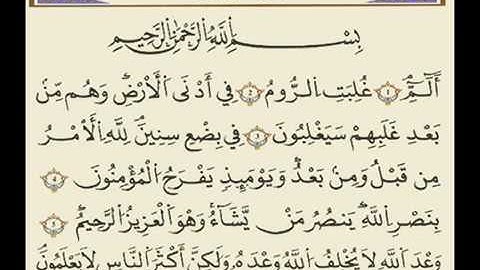 بِسْمِ اللَّهِ الرَّحْمَٰنِ الرَّحِيمِ
الٓمٓ ١ غُلِبَتِ الرُّومُ ٢ فِي أَدْنَى الْأَرْضِ وَهُم مِّنۢ
بَعْدِ غَلَبِهِمْ سَيَغْلِبُونَ ٣ فِي بِضْعِ سِنِينَ لِلَّهِ الْأَمْرُ
مِن قَبْلُ وَمِنۢ بَعْدُ وَيَوْمَئِذٍ يَفْرَحُ الْمُؤْمِنُونَ ٤
بِنَصْرِ اللَّهِ يَنصُرُ مَن يَشَاءُ وَهُوَ الْعَزِيزُ الرَّحِيمُ ٥
وَعْدَ اللَّهِ لَا يُخْلِفُ اللَّهُ وَعْدَهُ وَلَٰكِنَّ أَكْثَرَ النَّاسِ لَا يَعْلَمُونَ